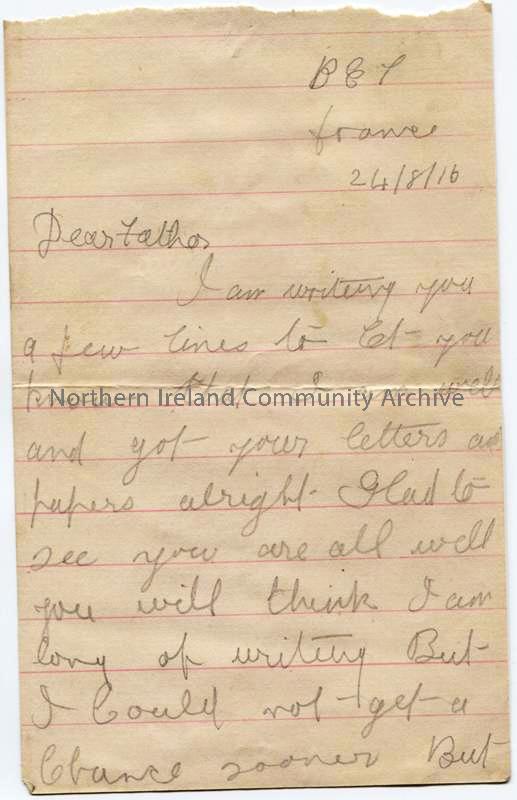 B E F
france
24/8/16
Dear Father
I am writing you
a few lines to let you
know that I am well
Northern Ireland Community Archive
and got your letters and
papers alright Glad to
see you are all well
you will think I am
long of writing But
I Could not get a
Chance sooner But